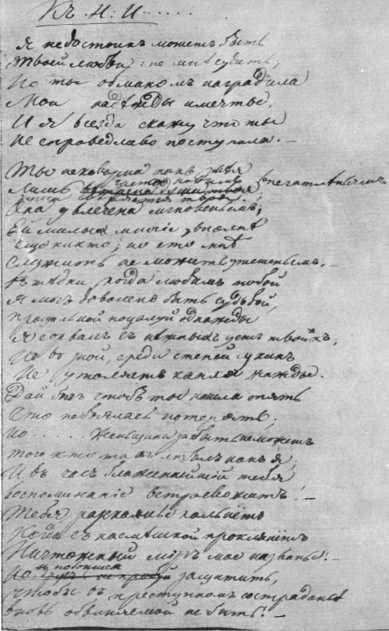 Къ Н. И.....
Я недостоинъ можетъ быть
Твоей любви: не мнѣ судить;
Но ты обманомъ наградила
Мои надежды и мечты,
И я всегда скажу что ты
Несправедливо поступила. —
Ты не коварна какъ змѣя
Лишь часто новымъ впечатлѣньямъ
Душа ввѣряется твоя.
Она увлечена мгновеньемъ;
Ей милы многіе, вполнѣ
Еще никто; но это мнѣ
Служить не можетъ утѣшеньемъ. —
Въ тѣ дни когда любимъ тобой
Я могъ доволенъ быть судьбой,
Прощальный поцѣлуй однажды
Я сорвалъ съ нѣжныхъ устъ твоихъ,
Но въ зной, среди степей сухихъ
Не утоляетъ капля жажды.
Дай богъ чтобъ ты нашла опять
Что не боялась потерять;
Но..... женщина забыть не можетъ
Того кто такъ любилъ какъ я;
И въ часъ блаженнѣйшій тебя
Воспоминаніе встревожитъ! —
Тебя раскаянье кольнетъ
Когда съ насмѣшкой проклянетъ
Ничтожный міръ мое названье! —
И побоишься защитить,
Чтобы въ преступномъ состраданьѣ
Вновь обвиняемой не быть! —